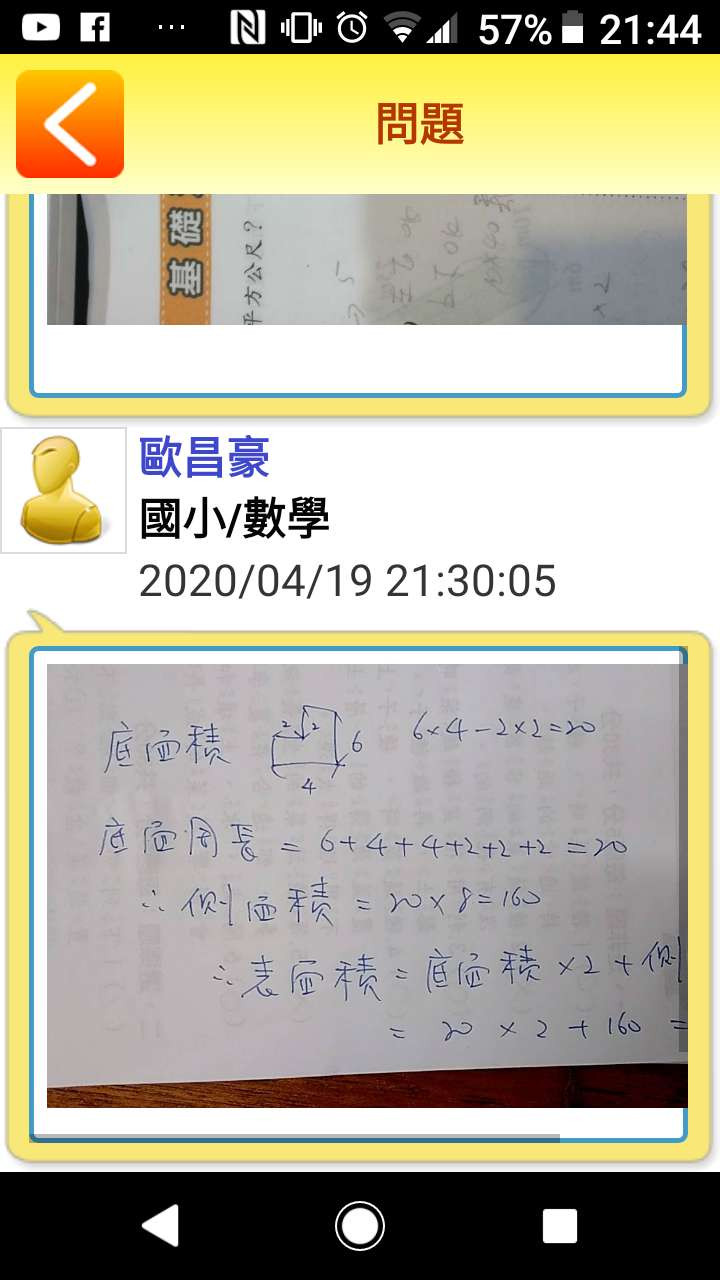 57% 21:44
問題
基礎
平方公尺?
歐昌豪
國小/數學
2020/04/19 21:30:05
底面積 2 2 6 4 6×4-2×2=20
底面周長 = 6+4+4+2+2+2 = 20
∴ 側面積 = 20×8=160
∴表面積 = 底面積×2+側
= 20 × 2 + 160 =